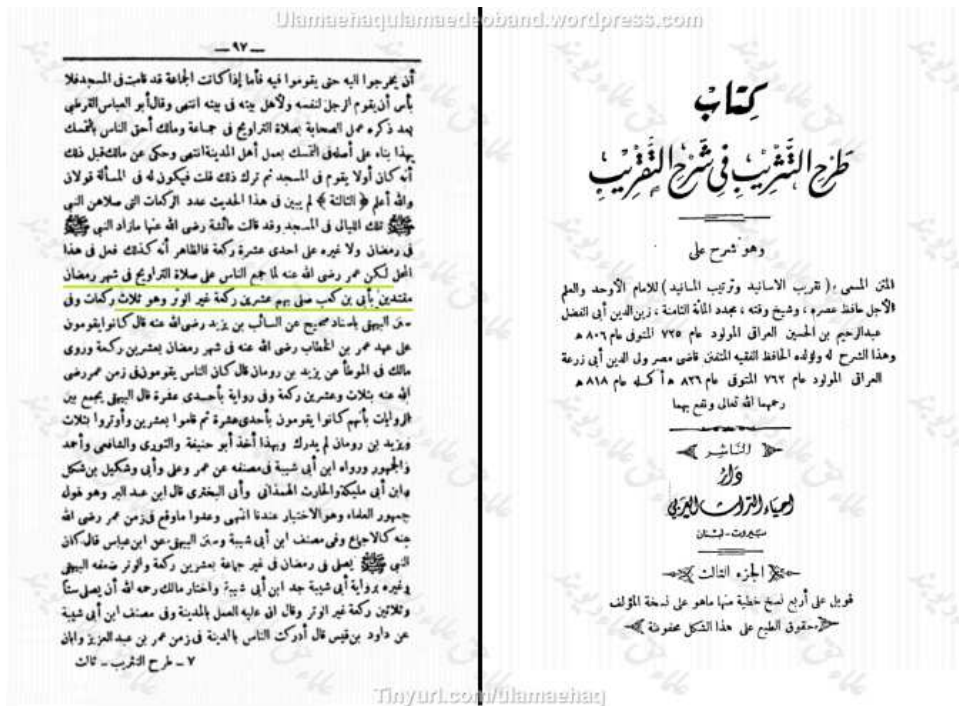 Ulamaehaqulamaedeoband.wordpress.com
— ٩٧ —
أن يخرجوا اليه حتى يقوموا فيه فأما إذا كانت الجماعة قد قامت فى المسجد فلا
بأس أن يقوم الرجل لنفسه ولأهل بيته فى بيته انتهى وقال أبو العباس القرطبى
بعد ذكره عمل الصحابة بصلاة التراويح فى جماعة ومالك أحق الناس بالتمسك
بهذا بناء على أصله فى التمسك بعمل أهل المدينة انتهى وحكى عن مالك قبل ذلك
أنه كان أولا يقوم فى المسجد ثم ترك ذلك قلت فيكون له فى المسألة قولان
والله أعلم ﴿ الثالثة ﴾ لم يبين فى هذا الحديث عدد الركعات التى صلاهن النبى
ﷺ تلك الليالى فى المسجد وقد قالت عائشة رضى الله عنها مازاد النبى ﷺ
فى رمضان ولا غيره على احدى عشرة ركعة فالظاهر أنه كذلك فعل فى هذا
المحل لكن عمر رضى الله عنه لما جمع الناس على صلاة التراويح فى شهر رمضان
مقتدين بأبى بن كعب صلى بهم عشرين ركعة غير الوتر وهو ثلاث ركعات وفى
سنن البيهقى باسناد صحيح عن السائب بن يزيد رضى الله عنه قال كانوا يقومون
على عهد عمر بن الخطاب رضى الله عنه فى شهر رمضان بعشرين ركعة وروى
مالك فى الموطأ عن يزيد بن رومان قال كان الناس يقومون فى زمن عمر رضى
الله عنه بثلاث وعشرين ركعة وفى رواية بأحدى عشرة قال البيهقى يجمع بين
الروايات بأنهم كانوا يقومون بأحدى عشرة ثم قاموا بعشرين وأوتروا بثلاث
ويزيد بن رومان لم يدرك وبهذا أخذ أبو حنيفة والثورى والشافعى وأحمد
والجمهور ورواه ابن أبى شيبة فى مصنفه عن عمر وعلى وأبى وشكيل بن شكل
وابن أبى مليكة والحارث الهمدانى وأبى البخترى قال ابن عبد البر وهو قول
جمهور العلماء وهو الاختيار عندنا انتهى وعدوا ماوقع فى زمن عمر رضى الله
عنه كالاجماع وفى مصنف ابن أبى شيبة وسنن البيهقى عن ابن عباس قال كان
النبى ﷺ يصلى فى رمضان فى غير جماعة بعشرين ركعة والوتر ضعفه البيهقى
وغيره برواية أبى شيبة جد ابن أبى شيبة واختار مالك رحمه الله أن يصلى ستا
وثلاثين ركعة غير الوتر وقال ان عليه العمل بالمدينة وفى مصنف ابن أبى شيبة
عن داود بن قيس قال أدركت الناس بالمدينة فى زمن عمر بن عبد العزيز وابان
٧ - طرح التثريب - ثالث
كتاب
طرح التثريب في شرح التقريب
وهو شرح على
المتن المسمى بـ ( تقريب الاسانيد وترتيب المسانيد ) للامام الأوحد والعلم
الأجل حافظ عصره ، وشيخ وقته ، مجدد المائة الثامنة ، زين الدين أبى الفضل
عبدالرحيم بن الحسين العراقى المولود عام ٧٢٥ المتوفى عام ٨٠٦ ھ
وهذا الشرح له ولولده الحافظ الفقيه المتفنن قاضى مصر ولى الدين أبى زرعة
العراقى المولود عام ٧٦٢ المتوفى عام ٨٢٦ ھ أكمله عام ٨١٨ ھ
رحمهما الله تعالى ونفع بهما
الناشر
دار
احياء التراث العربي
بيروت - لبنان
الجزء الثالث
قوبل على أربع نسخ خطية منها ماهو على نسخة المؤلف
حقوق الطبع على هذا الشكل محفوظة
Tinyurl.com/ulamaehaq